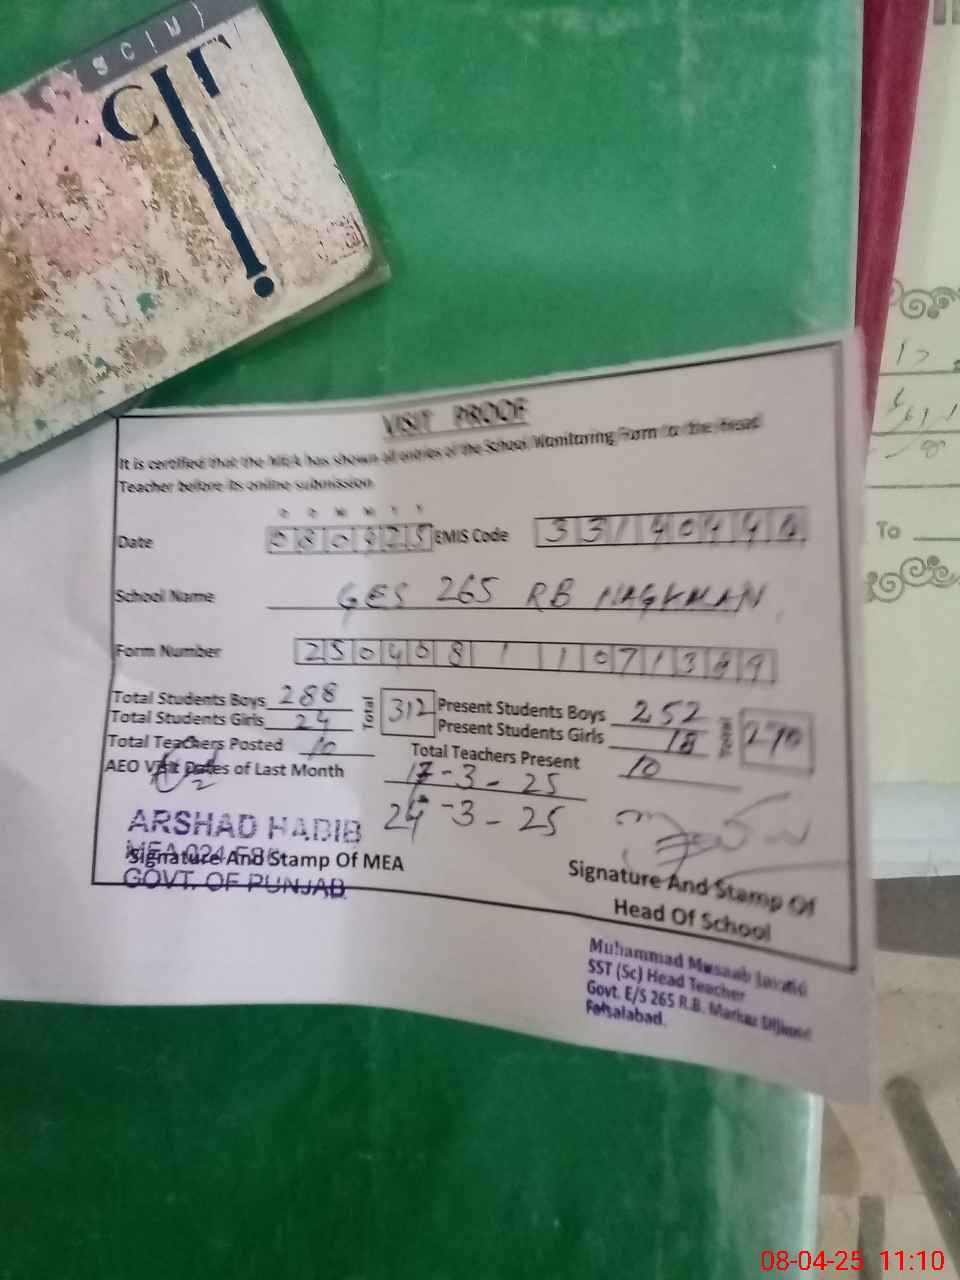 VISIT PROOF
It is certified that the MEA has shown all entries of the School Monitoring Form to the Head
Teacher before its online submission
D D M M Y Y
Date 080425 EMIS Code 33140444
School Name GES 265 RB NAGKMAN
Form Number 250408 1 1071389
Total Students Boys 288 Total 312 Present Students Boys 252 Total 270
Total Students Girls 24 Present Students Girls 18
Total Teachers Posted 10 Total Teachers Present 10
AEO Visit Dates of Last Month 17-3-25
24-3-25
ARSHAD HABIB
MEA 024
Signature And Stamp Of MEA
GOVT. OF PUNJAB
Signature And Stamp Of
Head Of School
Muhammad Musaab
SST (Sc) Head Teacher
Govt. E/S 265 R.B. Markaz
Faisalabad.
To
08-04-25 11:10